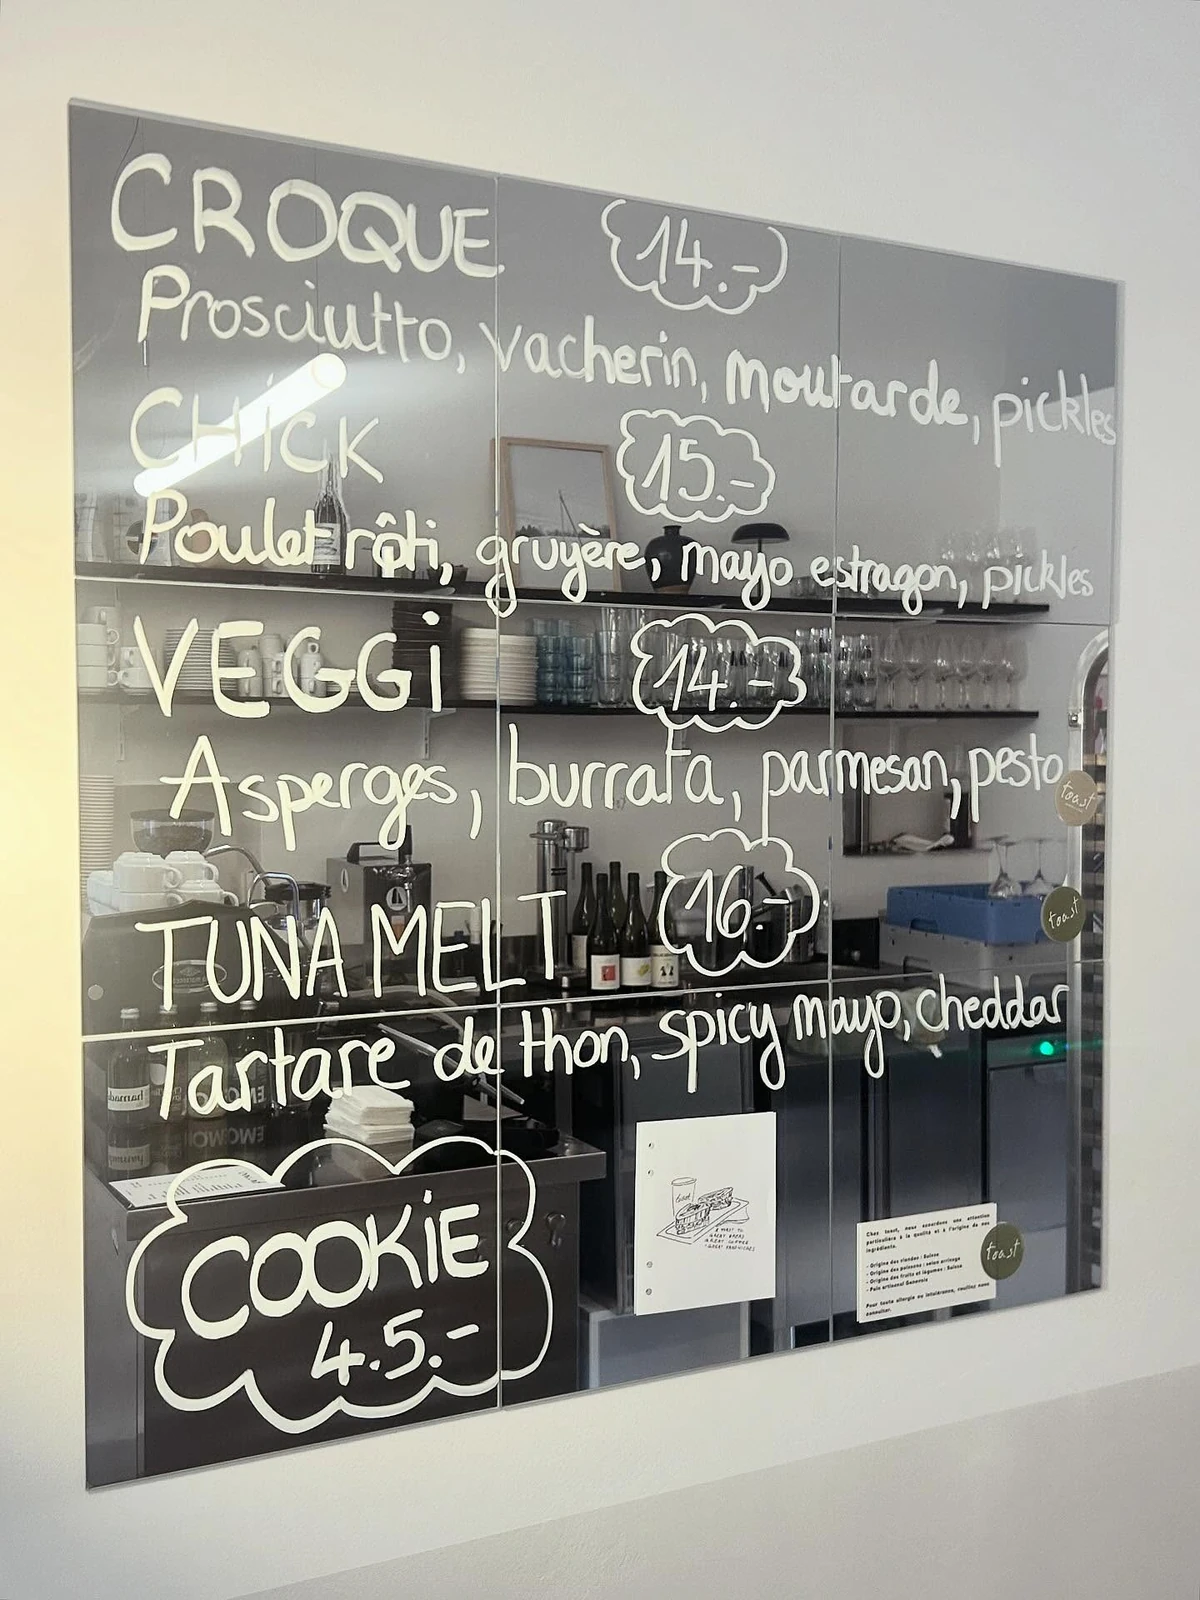 CROQUE 14.-
Prosciutto, vacherin, moutarde, pickles
CHiCK 15.-
Poulet rôti, gruyère, mayo estragon, pickles
VEGGi 14.-
Asperges, burrata, parmesan, pesto
toast
toast
TUNA MELT 16-
Tartare de thon, spicy mayo, cheddar
COOKiE
4.5.-
toast
GREAT COFFEE
Chez toast, nous accordons une attention
particulière à la qualité et à l'origine de nos
ingrédients.
- Origine des viandes : Suisse
- Origine des poissons : selon arrivage
- Origine des fruits et légumes : Suisse
- Pain artisanal Genevois
Pour toute allergie ou intolérance, veuillez nous
consulter.
toast